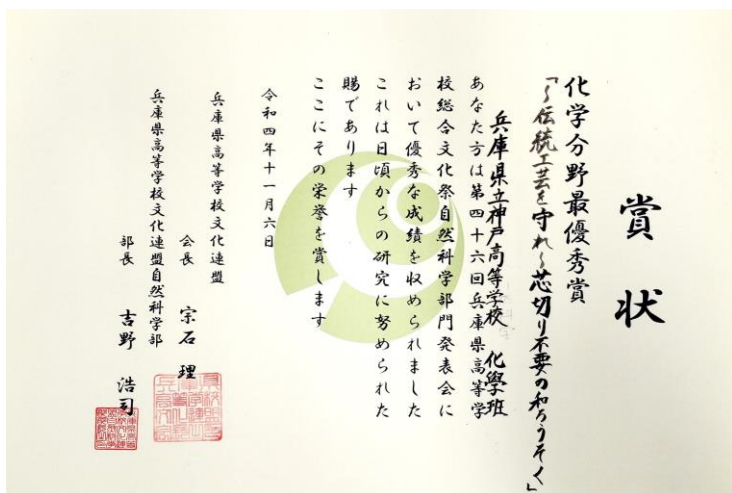 賞状
化学分野最優秀賞
「～伝統工芸を守れ～芯切り不要の和ろうそく」
兵庫県立神戸高等学校 化學班
あなた方は第四十六回兵庫県高等学
校総合文化祭自然科学部門発表会に
おいて優秀な成績を収められました
これは日頃からの研究に努められた
賜であります
ここにその栄誉を賞します
令和四年十一月六日
兵庫県高等学校文化連盟
会長 宗石 理
兵庫県高等学校文化連盟自然科学部
部長 吉野 浩司